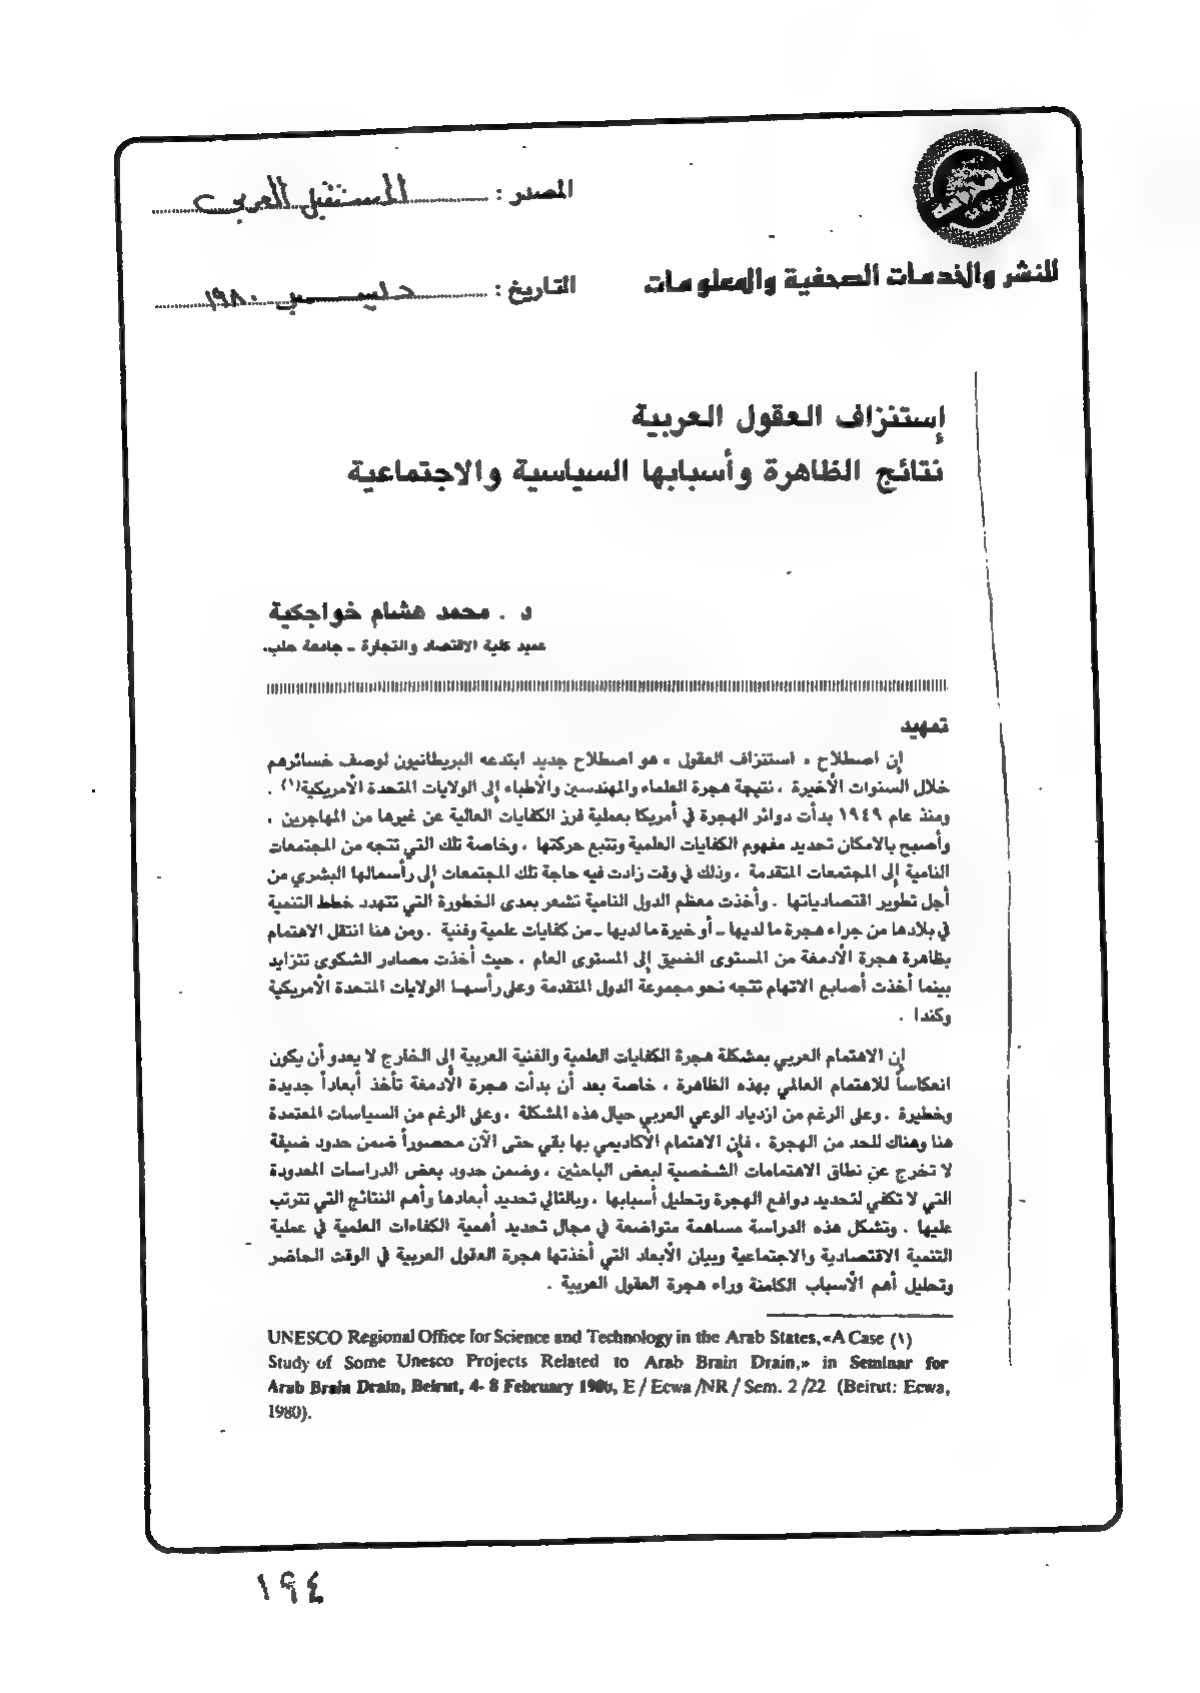 المصدر : المستقبل العربي
للنشر والخدمات الصحفية والمعلومات
التاريخ : ديسمبر ١٩٨٠
إستنزاف العقول العربية
نتائج الظاهرة وأسبابها السياسية والاجتماعية
د . محمد هشام خواجكية
عميد كلية الاقتصاد والتجارة - جامعة حلب.
تمهيد
إن اصطلاح « استنزاف العقول » هو اصطلاح جديد ابتدعه البريطانيون لوصف خسائرهم
خلال السنوات الأخيرة ، نتيجة هجرة العلماء والمهندسين والأطباء إلى الولايات المتحدة الأمريكية(١) .
ومنذ عام ١٩٤٩ بدأت دوائر الهجرة في أمريكا بعملية فرز الكفايات العالية عن غيرها من المهاجرين ،
وأصبح بالامكان تحديد مفهوم الكفايات العلمية وتتبع حركتها ، وخاصة تلك التي تتجه من المجتمعات
النامية إلى المجتمعات المتقدمة ، وذلك في وقت زادت فيه حاجة تلك المجتمعات إلى رأسمالها البشري من
أجل تطوير اقتصادياتها . وأخذت معظم الدول النامية تشعر بمدى الخطورة التي تتهدد خطط التنمية
في بلادها من جراء هجرة ما لديها - أو خيرة ما لديها - من كفايات علمية وفنية . ومن هنا انتقل الاهتمام
بظاهرة هجرة الأدمغة من المستوى الضيق إلى المستوى العام ، حيث أخذت مصادر الشكوى تتزايد
بينما أخذت أصابع الاتهام تتجه نحو مجموعة الدول المتقدمة وعلى رأسها الولايات المتحدة الأمريكية
وكندا .
إن الاهتمام العربي بمشكلة هجرة الكفايات العلمية والفنية العربية إلى الخارج لا يعدو أن يكون
انعكاساً للاهتمام العالمي بهذه الظاهرة ، خاصة بعد أن بدأت هجرة الأدمغة تأخذ أبعاداً جديدة
وخطيرة . وعلى الرغم من ازدياد الوعي العربي حيال هذه المشكلة ، وعلى الرغم من السياسات المعتمدة
هنا وهناك للحد من الهجرة ، فإن الاهتمام الأكاديمي بها بقي حتى الآن محصوراً ضمن حدود ضيقة
لا تخرج عن نطاق الاهتمامات الشخصية لبعض الباحثين ، وضمن حدود بعض الدراسات المحدودة
التي لا تكفي لتحديد دوافع الهجرة وتحليل أسبابها ، وبالتالي تحديد أبعادها وأهم النتائج التي تترتب
عليها . وتشكل هذه الدراسة مساهمة متواضعة في مجال تحديد أهمية الكفاءات العلمية في عملية
التنمية الاقتصادية والاجتماعية وبيان الأبعاد التي أخذتها هجرة العقول العربية في الوقت الحاضر
وتحليل أهم الأسباب الكامنة وراء هجرة العقول العربية .
UNESCO Regional Office for Science and Technology in the Arab States, «A Case (١)
Study of Some Unesco Projects Related to Arab Brain Drain,» in Seminar for
Arab Brain Drain, Beirut, 4- 8 February 1980, E / Ecwa /NR / Sem. 2 /22 (Beirut: Ecwa,
1980).
١٩٤